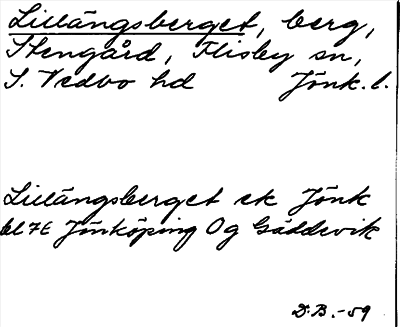 Lillängsberget, berg,
Stengård, Flisby sn,
S. Vedbo hd Jönk. l.
Lillängsberget ek Jönk
bl 7E Jönköping Og Gäddevik
D.B. -59